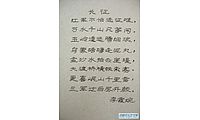 长征
红军不怕远征难，
万水千山只等闲。
五岭逶迤腾细浪，
乌蒙磅礴走泥丸，
金沙水拍云崖暖，
大渡桥横铁索寒。
更喜岷山千里雪，
三军过后尽开颜。